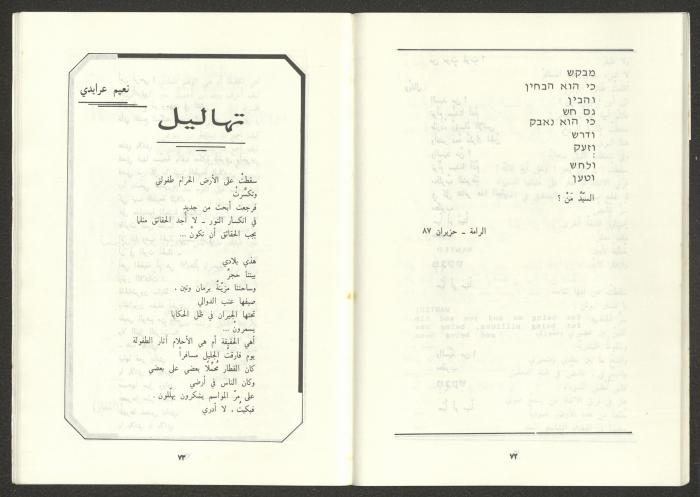 מבקש
כי הוא הבחין
והבין
גם חש
כי הוא נאבק
ודרש
וזעק
:
ולחש
וטען
السيّدُ مَنْ ؟
الرامة ـ حزيران ٨٧
٧٢
نعيم عرايدي
تهاليل
سقطتْ على الأرض الحرام طفولتي
وتكسَّرتْ
فرجعت أبحث من جديد
في انكسار النور ـ لا أجد الحقائق مثلما
يجب الحقائق أن تكونْ ...
هذي بلادي
بيتنا حجرٌ
وساحتنا مزيّنةٌ برمان وتين .
صيفها عنب الدوالي
تحتها الجيران في ظل الحكايا
يسمرونْ ...
أهي الحقيقة أم هي الأحلام آثار الطفولة
يوم فارقتُ الجليل مسافراً
كان القطار مُحمَّلاً بعضي على بعضي
وكان الناس في أرضي
على مرّ المواسم يشكرون يهلّلون .
فبكيتُ . لا أدري
٧٣